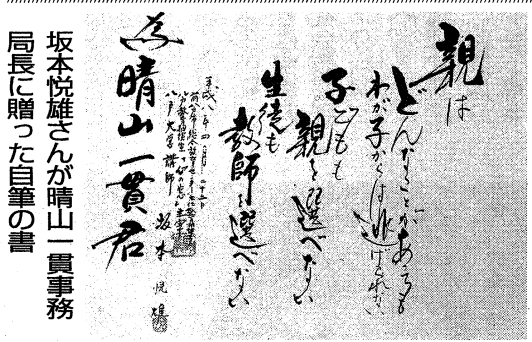 親は
どんなことがあっても
わが子からは逃げられない
子どもも
親を選べない
生徒も
教師を選べない
平成八年四月二十二日
八戸大学講師
坂本悦雄
為晴山一貫君
坂本悦雄さんが晴山一貫事務
局長に贈った自筆の書